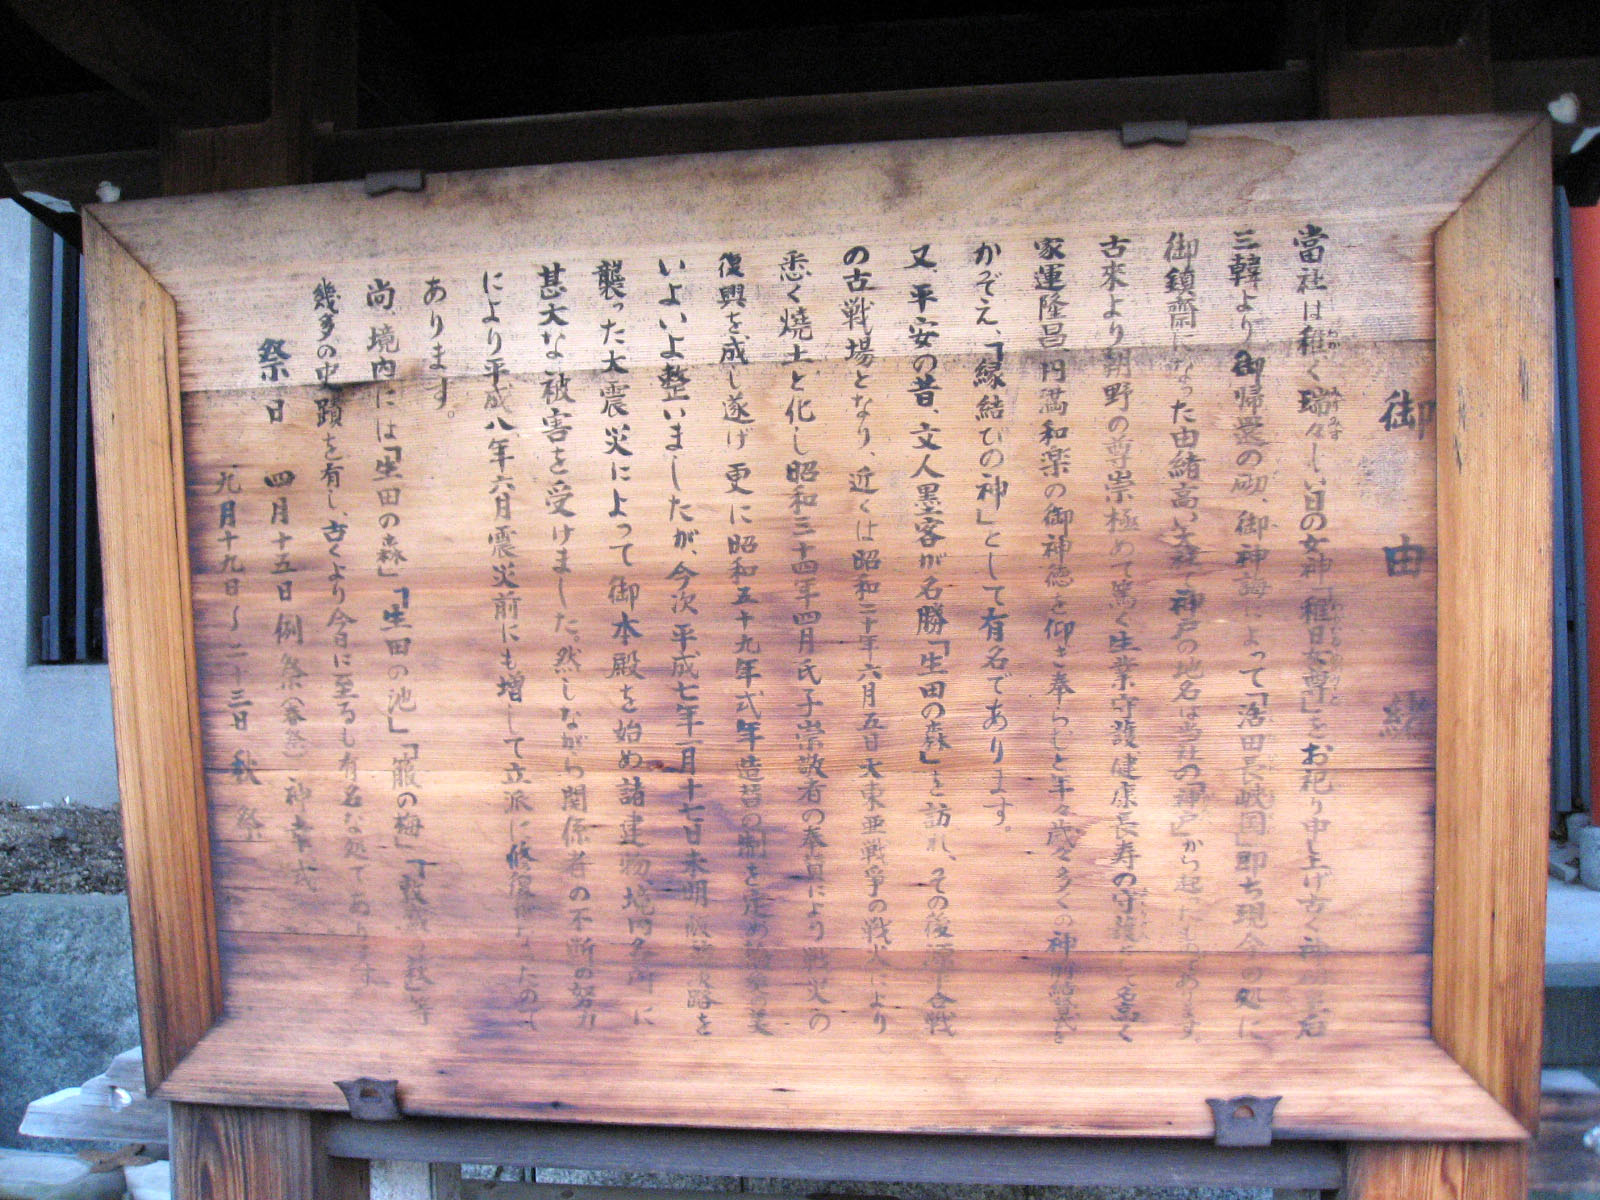 御由緒
當社は稚く瑞々しい日の女神「稚日女尊」をお祀り申し上げ古く神功皇后
三韓より御帰還の砌、御神誨によって「活田長峡国」即ち現今の処に
御鎮齋になった由緒高い大社で神戸の地名は当社の「神戸」から起ったものであります。
古來より朝野の尊崇極めて篤く生業守護健康長寿の守護として名高く
家運隆昌、円満和楽の御神徳を仰ぎ奉らむと年々歳々多くの神前結婚式を
かぞえ、「縁結びの神」として有名であります。
又、平安の昔、文人墨客が名勝「生田の森」を訪れ、その後源平合戦
の古戦場となり、近くは昭和二十年六月五日大東亜戦争の戦火により
悉く焼土と化し昭和三十四年四月氏子崇敬者の奉賛により戦災の
復興を成し遂げ更に昭和五十九年式年造替の制を定め
いよいよ整いましたが、今次平成七年一月十七日未明阪神淡路を
襲った大震災によって御本殿を始め諸建物境内各所に
甚大な被害を受けました。然しながら関係者の不断の努力
により平成八年六月震災前にも増して立派に修復になったので
あります。
尚、境内には「生田の森」「生田の池」「箙の梅」「敦盛の萩」等
幾多の史蹟を有し、古くより今日に至るも有名な処であります
祭日 四月十五日 例祭(春祭) 神幸式
九月十九日～二十三日 秋祭